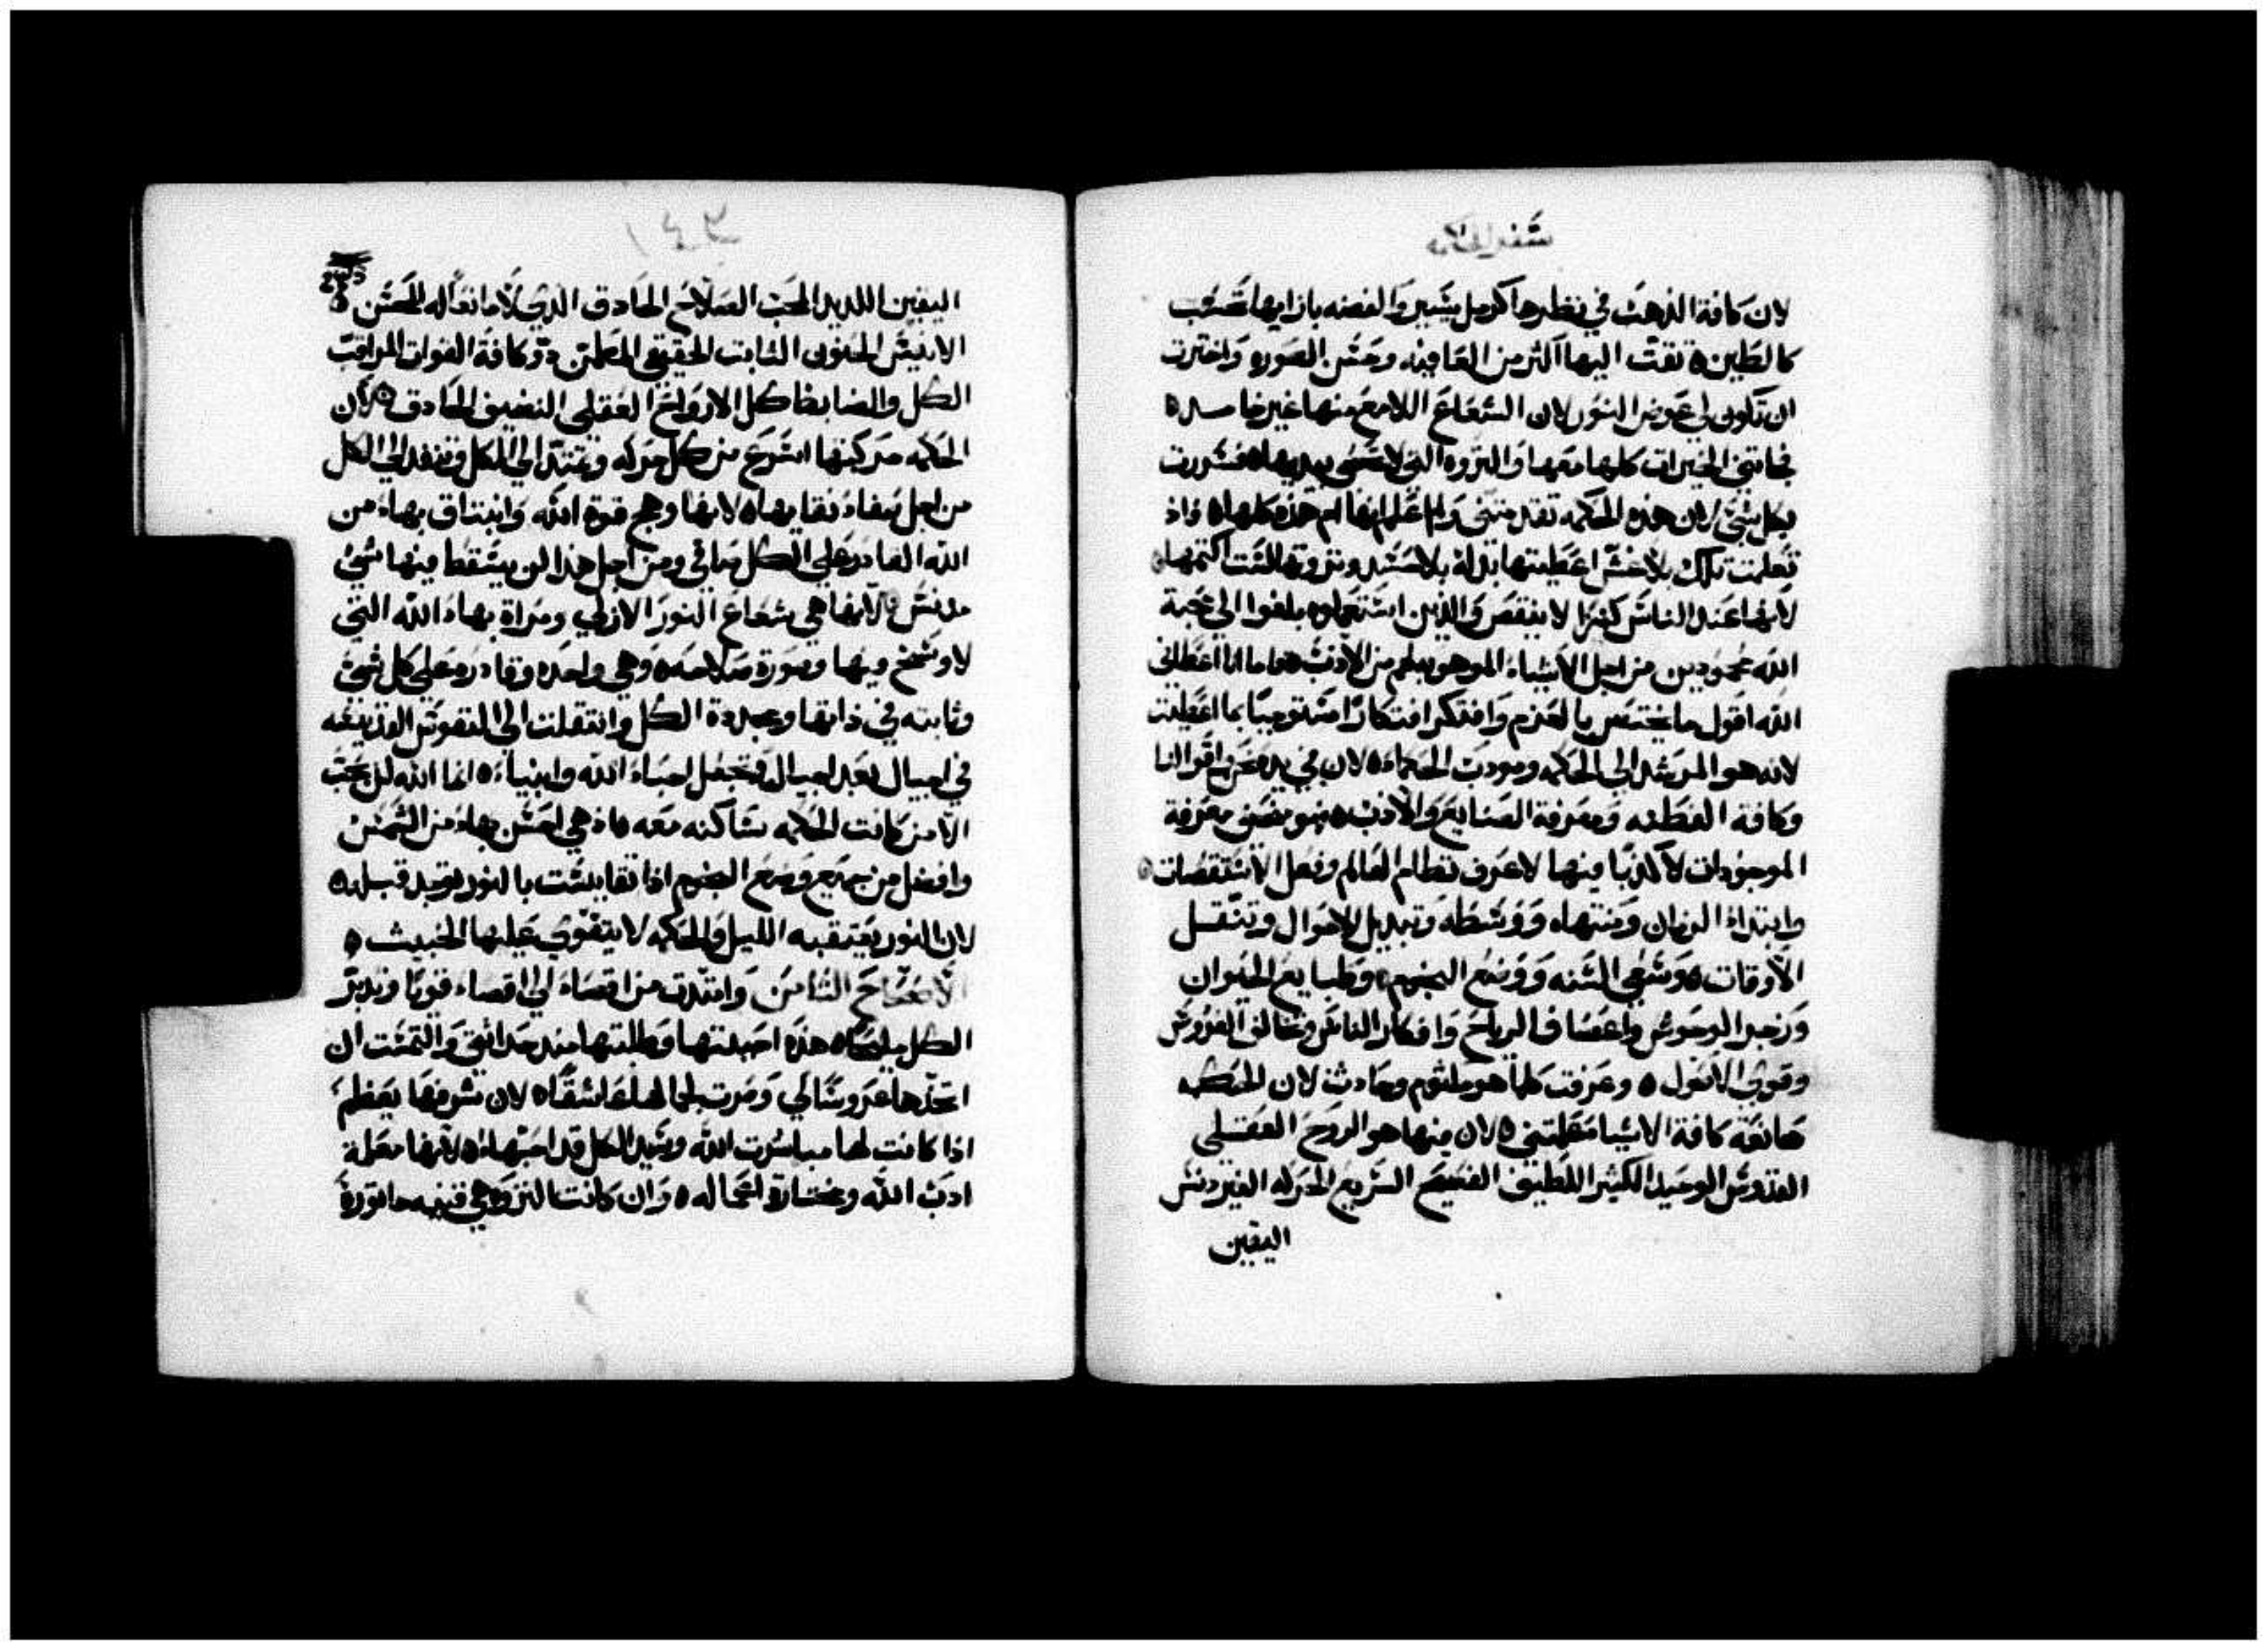 سفر الحكمه
لان كافة الذهب في نظرها كرمل يسير والفضه بازايها تحسب
كالطين ٥ تقت اليها اكثر من العافيه وحسن الصوره واخترت
ان تكون لي عوض النور لان الشعاع اللامع منها غير خامد ٥
فجاتني الخيرات كلها معها والثروه التي لا تحصى بيديها ٥ فسررت
بكل شي لان هذه الحكمه تقدمتني ولم اعلم انها ام هذه كلها ٥ واذ
تعلمت تلك بلا غش اعطيتها بذله بلا حسد وثروتها لست اكتمها ٥
لانها عند الناس كنزا لا ينقص والذين استعملوه بلغوا الى محبة
الله محمودين من اجل الاشياء الموهوبه لهم من الادب ٥ فاما انا اعطاني
الله اقول ما يختص بالعزم وافتكر افتكارا مستوجبا بما اعطيت
لانه هو المرشد الي الحكمه ومودب الحكماء ٥ لان في يده نحن واقوالنا
وكافة الفطنه ومعرفة الصنايع والادب ٥ فهو منحني معرفة
الموجودات لا كذبا فيها لاعرف نظام العالم وفعل الاستقصات ٥
وابتداء الزمان ومنتهاه ووسطه وتبديل الاحوال وتنقل
الاوقات ٥ وسعي السنه ووضع النجوم ٥ وطبايع الحيوان
وزجر الوحوش واعصاف الرياح وافكار الناس وتخالف الغروس
وقوي الاصول ٥ وعرفت كلما هو مكتوم وحادث لان الحكمه
صانعة كافة الاشيا عقلتني ٥ لان فيها هو الروح العقلي
القدوس الوحيد الكثير اللطيف الفصيح السريع الحركه الغير دنس
اليقين
اليقين اللذيد المحب الصلاح الحادق الذي لا مانعا له المحسن
الانيس الحنون الثابت الحقيقي المطمن ذو كافة القوات المراقب
الكل والضابط كل الارواح العقلي النضيف الحادق ٥ لان
الحكمه حركتها اسرع من كل حركه وتمتد الي الكل وتنفد الي الكل
من اجل صفاء نقايها ٥ لانها وهج قوة الله وانبثاق بهاء من
الله القادر على الكل صافي ومن اجل هذا لن يسقط فيها شي
مدنس ٥ لانها هي شعاع النور الازلي ومراة بهاء الله التي
لا وسخ فيها وصورة صلاحه ٥ وهي واحده وقادره علي كل شي
وثابته في ذاتها ومجددة الكل وانتقلت الي النفوس القديسه
في اجيال بعد اجيال وتجعل احباء الله وانبياء ٥ انما الله لن يحب
الا من كانت الحكمه ساكنه معه ٥ اذ هي احسن بهاء من الشمس
وافضل من جميع وضع النجوم اذا تقايست بالنور توجد قبله ٥
لان النور يعتقبه الليل والحكمه لا يتقوي عليها الخبيث ٥
الاصحاح الثامن وامتدت من اقصاء الي اقصاء قويا وتدبر
الكل مليحا ٥ هذه احببتها وطلبتها منذ حداثتي والتمست ان
اتخذها عروسا لي وصرت لجمالها عاشقا ٥ لان شرفها يعظم
اذا كانت لها مباشرت الله وسيد الكل قد احبها ٥ لانها معلمة
ادب الله ومختارة اعماله ٥ وان كانت الثروه هي قنيه ماثورة